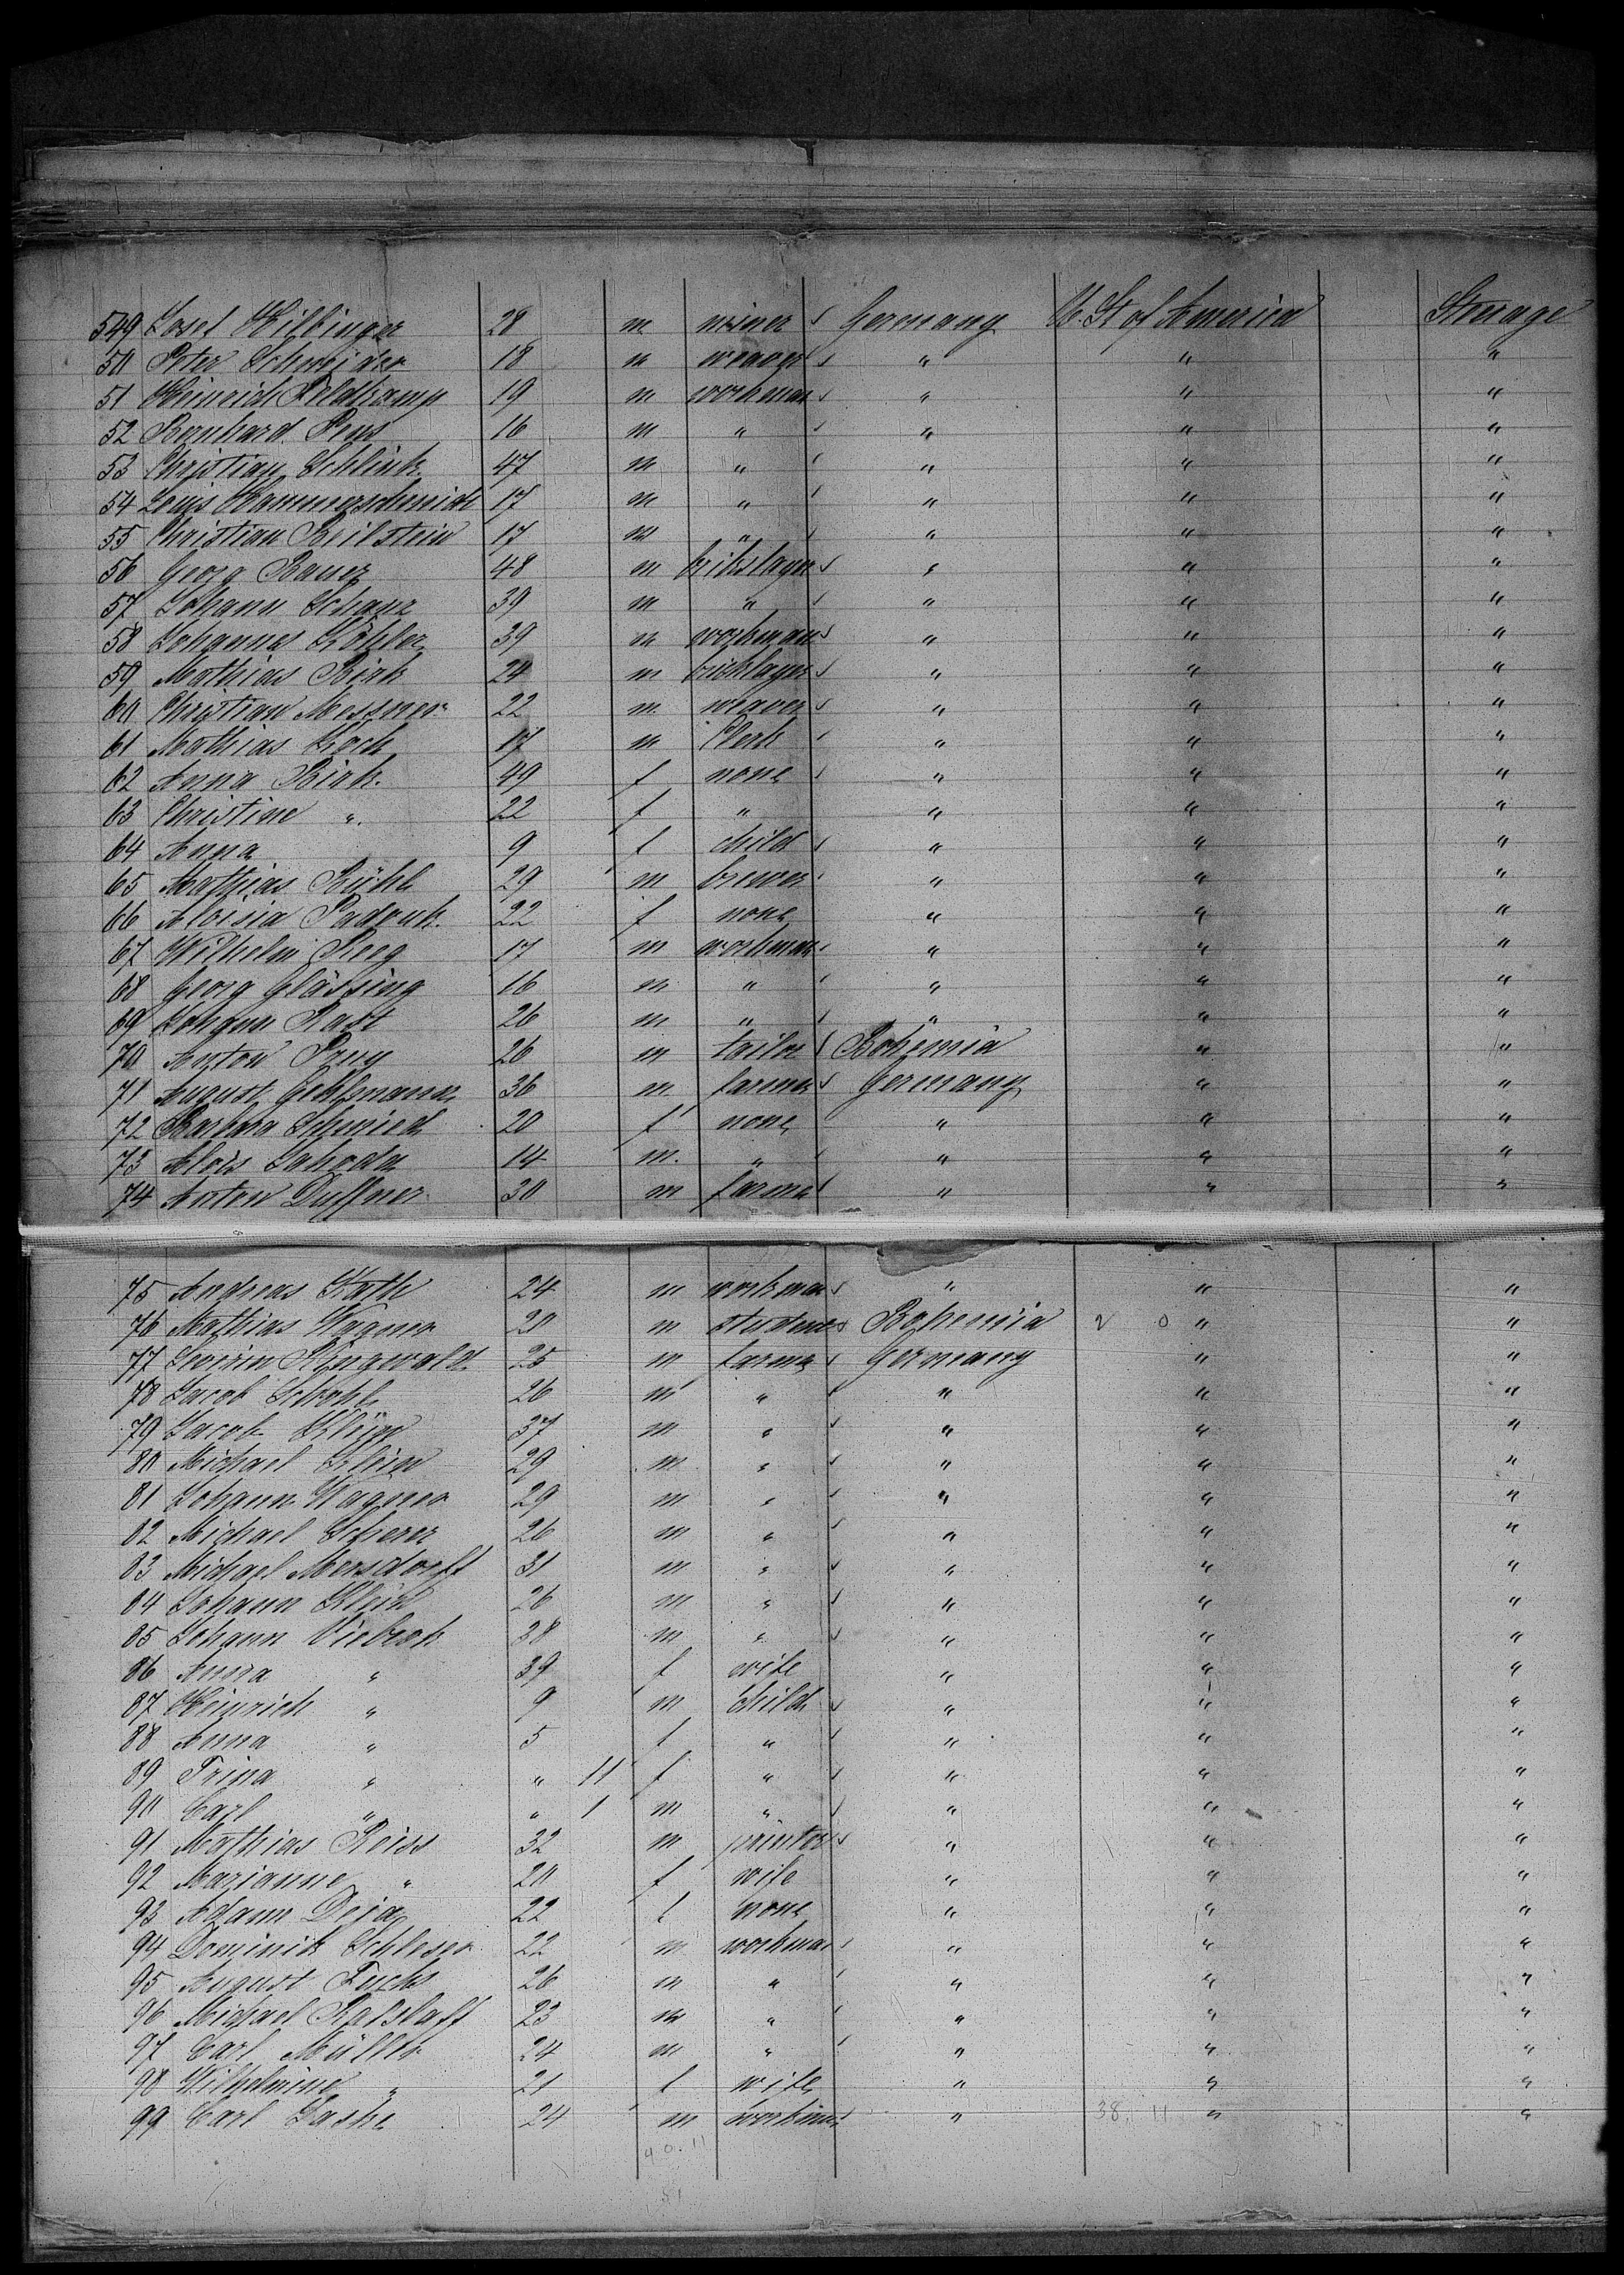 549 Josef Hilbinger 28 m miner Germany U. St of America Steerage
50 Peter Schneider 18 m weaver " " "
51 Heinrich Feldkamp 19 m workman " " "
52 Bernhard Pens 16 m " " " "
53 Christian Schlink 47 m " " " "
54 Louis Hammerschmidt 17 m " " " "
55 Christian Beilstein 17 m " " " "
56 Georg Bauer 48 m brikslayer " " "
57 Johann Schanz 39 m " " " "
58 Johannes Köhler 39 m workman " " "
59 Mathias Birk 24 m bricklayer " " "
60 Christian Messner 22 m weaver " " "
61 Mathias Koch 17 m Clerk " " "
62 Anna Birk 49 f none " " "
63 Christine " 22 f " " " "
64 Anna 9 f child " " "
65 Mathias Bühl 29 m brewer " " "
66 Aloisia Padouk 22 f none " " "
67 Wilhelm Steeg 17 m workman " " "
68 Georg Glässing 16 m " " " "
69 Johann Rast 26 m " " " "
70 Anton 26 m tailor Bohemia " "
71 August Gehlsmann 36 m farmer Germany " "
72 Barbara Schmied 20 f none " " "
73 Alois Lahoda 14 m " " " "
74 Anton Duffner 30 m farmer " " "
75 Andreas Kath 24 m workman " " "
76 Mathias Wagner 20 m student Bohemia " "
77 Severin Ringwald 25 m farmer Germany " "
78 Jacob 26 m " " " "
79 Jacob 37 m " " " "
80 Michael Klein 29 m " " " "
81 Johann Wagner 29 m " " " "
82 Michael Scherer 26 m " " " "
83 Michael Mensdorff 31 m " " " "
84 Johann Klein 26 m " " " "
85 Johann Viebrok 38 m " " " "
86 Anna " 39 f wife " " "
87 Heinrich " 9 m child " " "
88 Anna " 5 f " " " "
89 Trina " " 11 f " " " "
90 Carl " " 1 m " " " "
91 Mathias Reiss 32 m painter " " "
92 Marianne " 20 f wife " " "
93 Adam Deja 22 f none " " "
94 Dominik Schleser 22 m workman " " "
95 August Fuchs 26 m " " " "
96 Michael Ratslaff 23 m " " " "
97 Carl Müller 24 m " " " "
98 Wilhelmine " 21 f wife " " "
99 Carl Laske 24 m workman " 38. 11 " "
40. 11